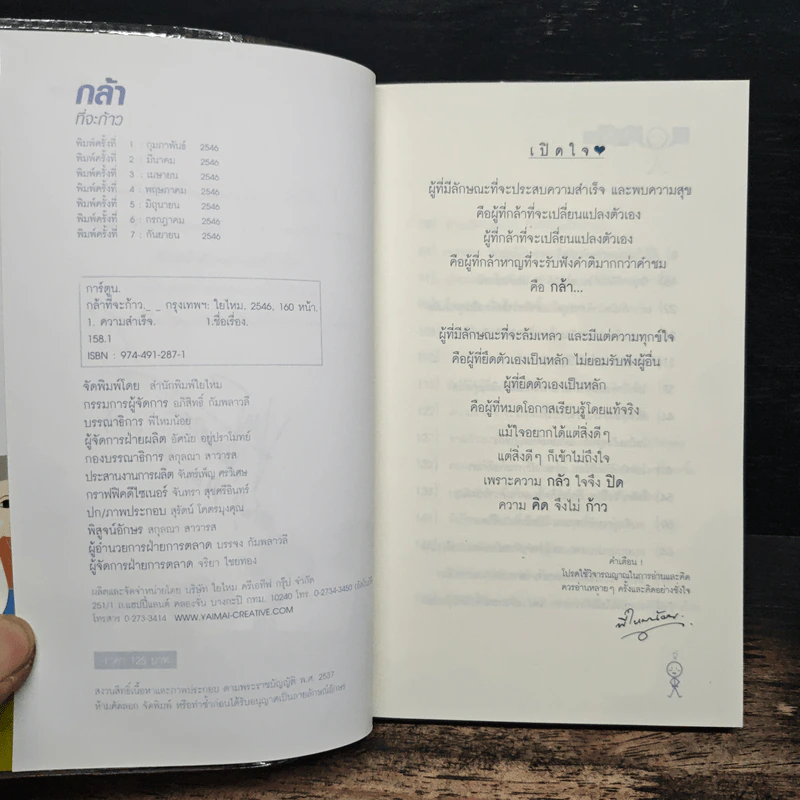 กล้า
ที่จะก้าว
พิมพ์ครั้งที่ 1 : กุมภาพันธ์ 2546
พิมพ์ครั้งที่ 2 : มีนาคม 2546
พิมพ์ครั้งที่ 3 : เมษายน 2546
พิมพ์ครั้งที่ 4 : พฤษภาคม 2546
พิมพ์ครั้งที่ 5 : มิถุนายน 2546
พิมพ์ครั้งที่ 6 : กรกฎาคม 2546
พิมพ์ครั้งที่ 7 : กันยายน 2546
การ์ตูน.
กล้าที่จะก้าว._ _ กรุงเทพฯ: ใยไหม, 2546, 160 หน้า.
1. ความสำเร็จ. 1.ชื่อเรื่อง.
158.1
ISBN : 974-491-287-1
จัดพิมพ์โดย สำนักพิมพ์ใยไหม
กรรมการผู้จัดการ อภิสิทธิ์ กัมพลาวลี
บรรณาธิการ พี่ใหมน้อย
ผู้จัดการฝ่ายผลิต อัศนัย อยู่ปราโมทย์
กองบรรณาธิการ สกุลณา สาวารส
ประสานงานการผลิต จันทร์เพ็ญ ศรวิเศษ
กราฟฟิคดีไซเนอร์ จันทรา สุขศรีอินทร์
ปก/ภาพประกอบ สุรัตน์ โคตรมุงคุณ
พิสูจน์อักษร สกุลณา สาวารส
ผู้อำนวยการฝ่ายการตลาด บรรจง กัมพลาวลี
ผู้จัดการฝ่ายการตลาด จริยา ไชยทอง
ผลิตและจัดจำหน่ายโดย บริษัท ใยไหม ครีเอทีฟ กรุ๊ป จำกัด
251/1 ถ.แฮปปี้แลนด์ คลองจั่น บางกะปิ กทม. 10240 โทร. 0-2734-3450
โทรสาร 0-273-3414 WWW.YAIMAI-CREATIVE.COM
ราคา 125 บาท
สงวนสิทธิ์เนื้อหาและภาพประกอบ ตามพระราชบัญญัติ พ.ศ. 2537
ห้ามคัดลอก จัดพิมพ์ หรือทำซ้ำก่อนได้รับอนุญาตเป็นลายลักษณ์อักษร
เปิดใจ
ผู้ที่มีลักษณะที่จะประสบความสำเร็จ และพบความสุข
คือผู้ที่กล้าที่จะเปลี่ยนแปลงตัวเอง
ผู้ที่กล้าที่จะเปลี่ยนแปลงตัวเอง
คือผู้ที่กล้าหาญที่จะรับฟังคำติมากกว่าคำชม
คือ กล้า...
ผู้ที่มีลักษณะที่จะล้มเหลว และมีแต่ความทุกข์ใจ
คือผู้ที่ยึดตัวเองเป็นหลัก ไม่ยอมรับฟังผู้อื่น
ผู้ที่ยึดตัวเองเป็นหลัก
คือผู้ที่หมดโอกาสเรียนรู้โดยแท้จริง
แม้ใจอยากได้แต่สิ่งดีๆ
แต่สิ่งดีๆ ก็เข้าไม่ถึงใจ
เพราะความ กลัว ใจจึง ปิด
ความ คิด จึงไม่ ก้าว
คำเตือน !
โปรดใช้วิจารณญาณในการอ่านและคิด
ควรอ่านหลายๆ ครั้งและคิดอย่างชั่งใจ